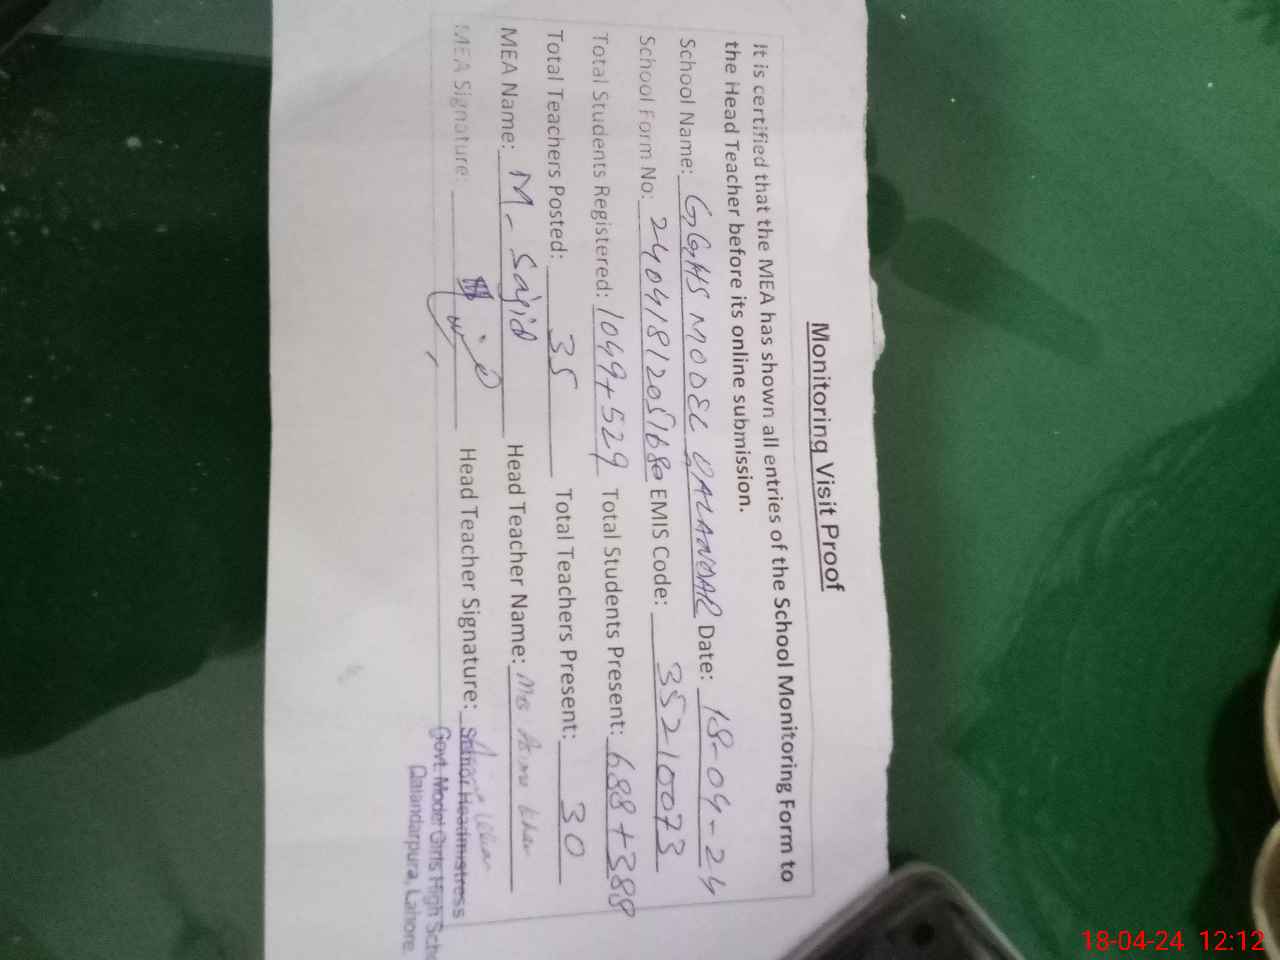 Monitoring Visit Proof
It is certified that the MEA has shown all entries of the School Monitoring Form to
the Head Teacher before its online submission.
School Name: GGHS MODEL QALANDAR Date: 18-04-24
School Form No: EMIS Code: 35210073
Total Students Registered: 1049+529 Total Students Present: 688+388
Total Teachers Posted: 35 Total Teachers Present: 30
MEA Name: M- Sajid Head Teacher Name: Mrs Asma Khan
MEA Signature: Head Teacher Signature:
Senior Headmistress
Govt. Model Girls High Scho
Qalandarpura, Lahore.
18-04-24 12:12